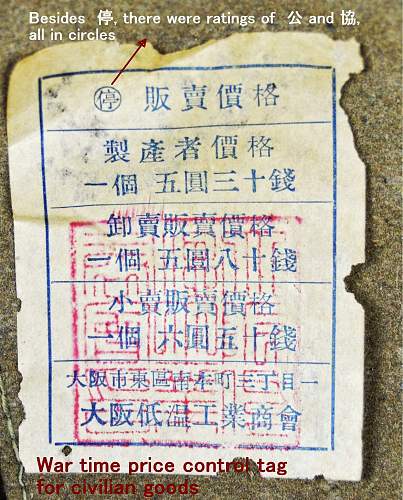 Besides 停, there were ratings of 公 and 協,
all in circles
停 販賣價格
製產者價格
一個 五圓三十錢
卸賣販賣價格
一個 五圓八十錢
小賣販賣價格
一個 六圓五十錢
大阪市東區南本町三丁目一
大阪低溫工業商會
War time price control tag
for civilian goods